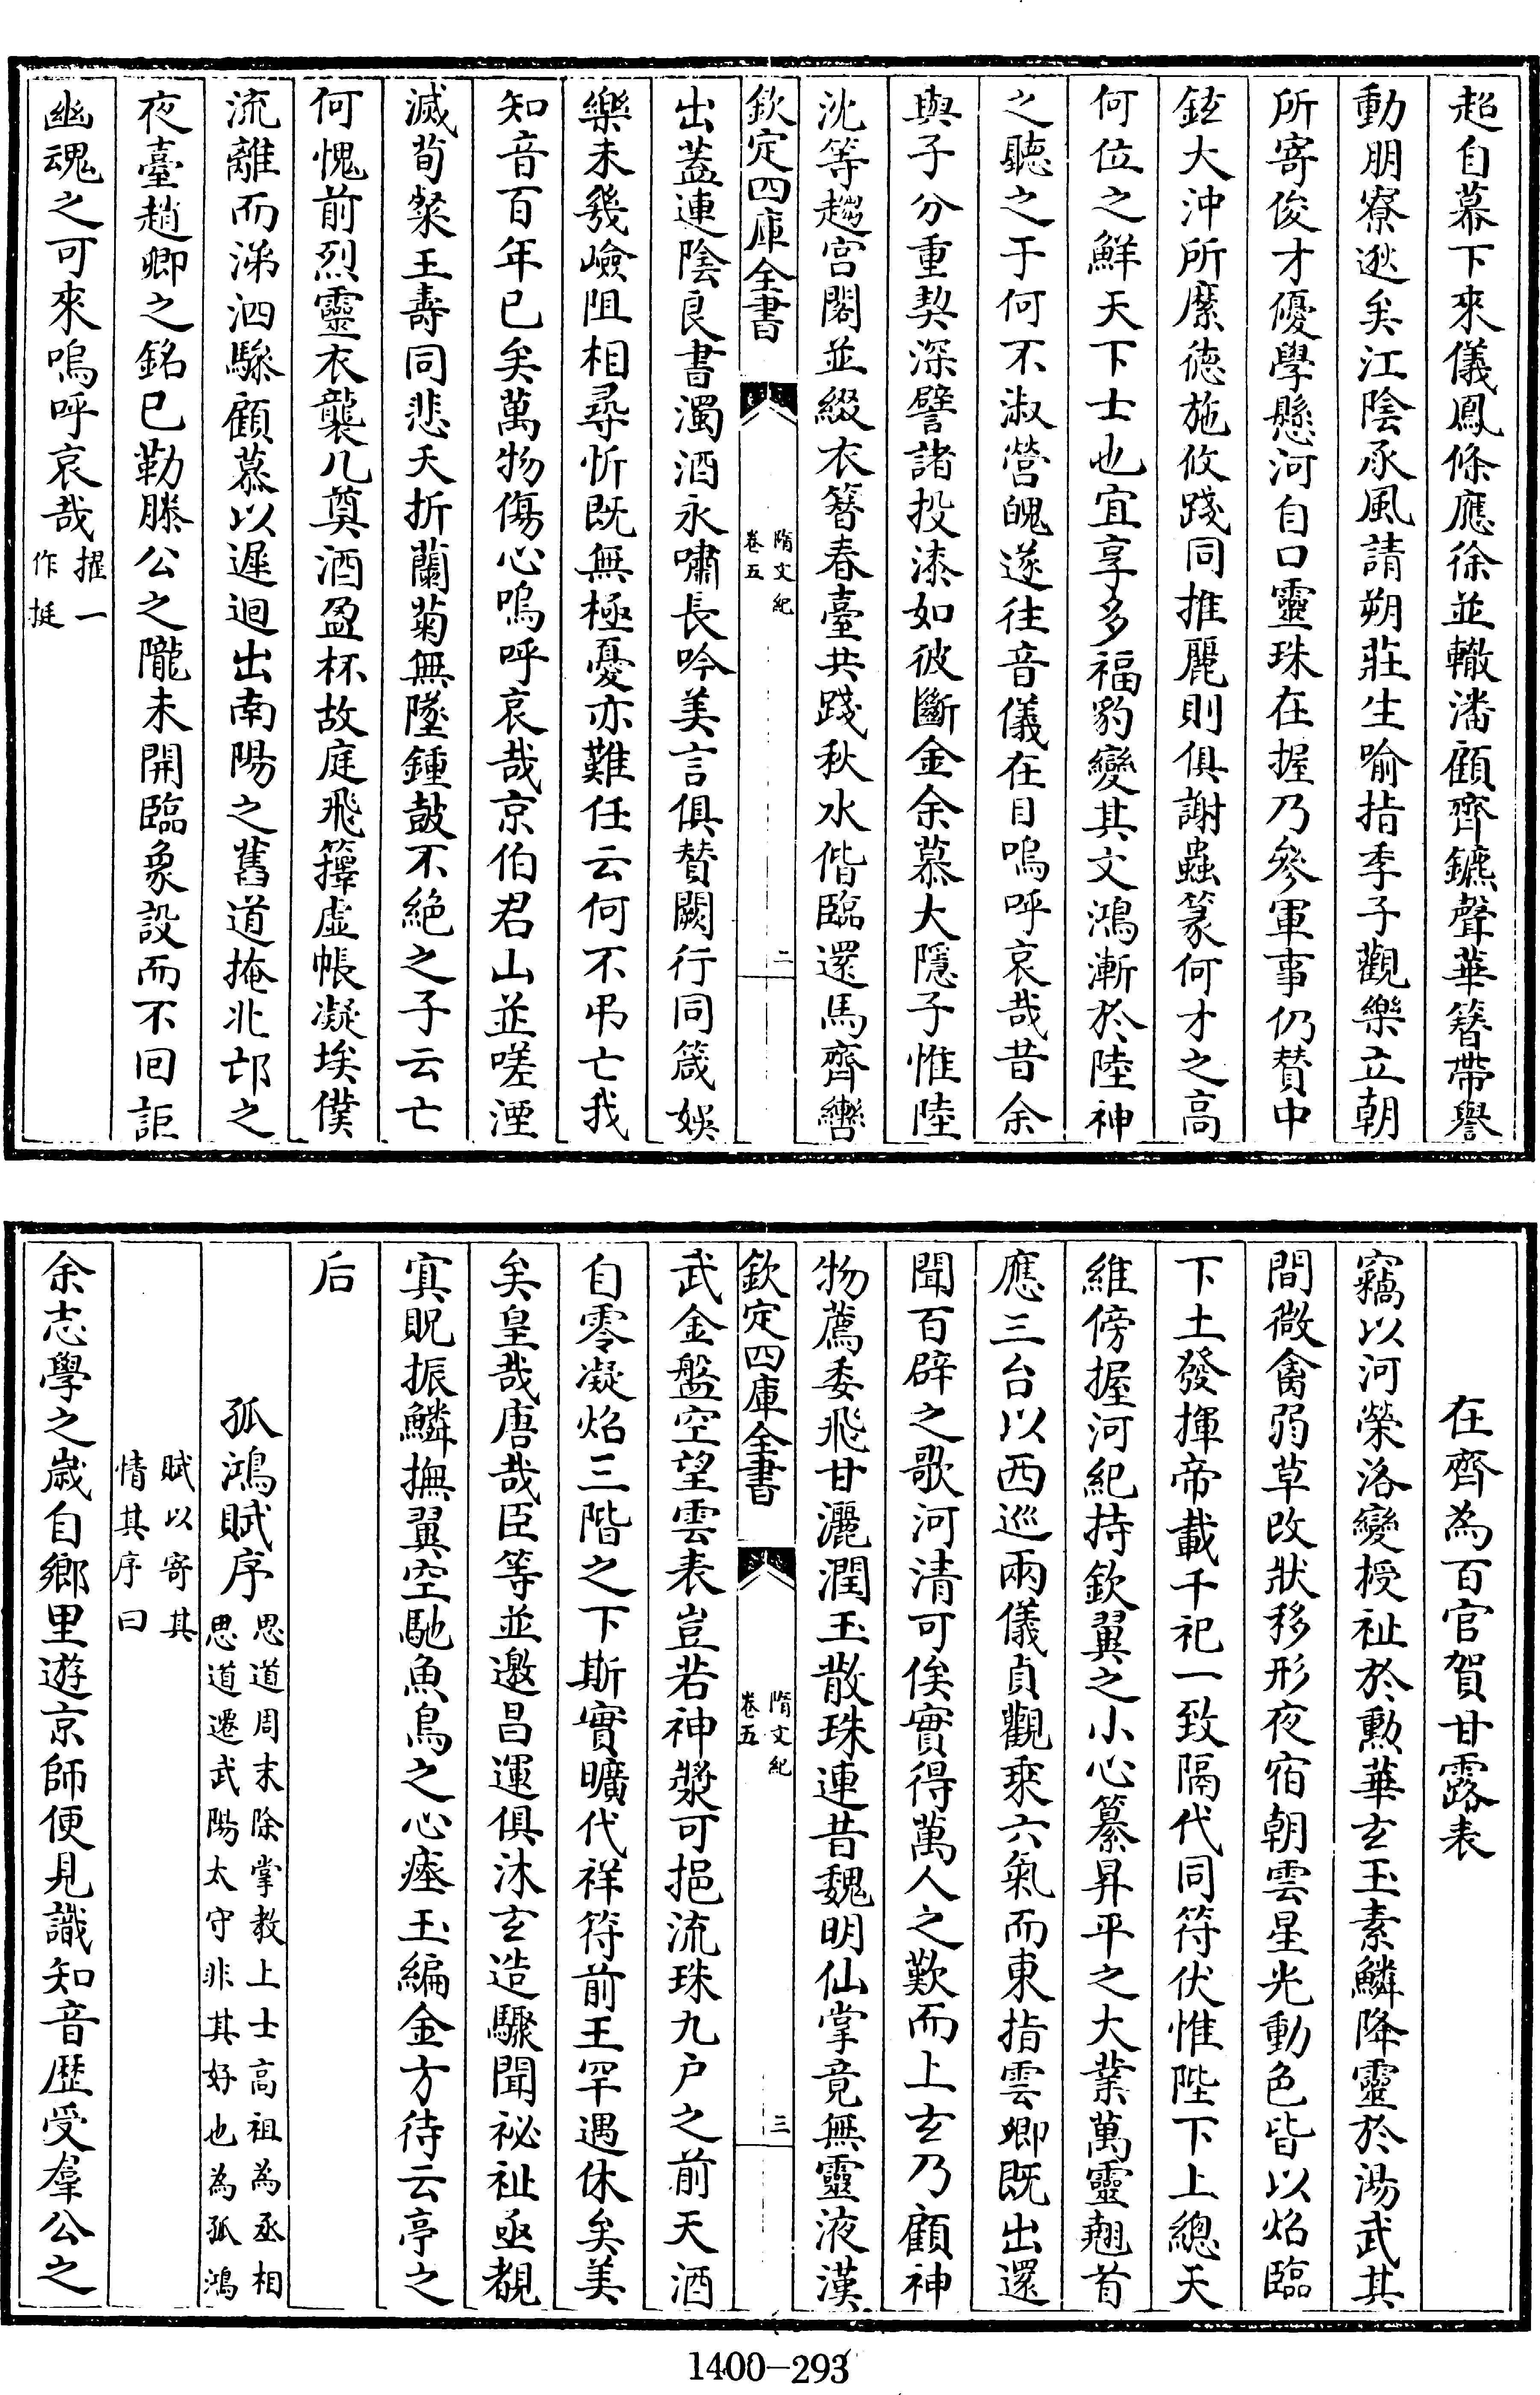 超自幕下來儀鳳條應徐並轍潘顧齊鑣聲華簮帶譽
動朋寮逖矣江陰承風請朔莊生喻指季子觀樂立朝
所寄俊才優學懸河自口靈珠在握乃參軍事仍賛中
鉉大沖所縻德施攸踐同推麗則俱謝蟲篆何才之高
何位之鮮天下士也宜享多福豹變其文鴻漸於陸神
之聽之于何不淑營魄遂往音儀在目嗚呼哀哉昔余
與子分重契深譬諸投漆如彼斷金余慕大隱子惟陸
沈等趨宫閣並綴衣簮春臺共踐秋水偕臨還馬齊轡
欽定四庫全書
隋文紀
卷五
二
出蓋連陰良書濁酒永嘯長吟美言俱賛闕行同箴娛
樂未幾嶮阻相尋忻既無極憂亦難任云何不弔亡我
知音百年已矣萬物傷心嗚呼哀哉京伯君山並嗟湮
滅荀粲王壽同悲夭折蘭菊無墜鍾鼓不絶之子云亡
何愧前烈靈衣襲几奠酒盈杯故庭飛籜虚帳凝埃僕
流離而涕泗驂顧慕以遲迴出南陽之舊道掩北邙之
夜臺趙卿之銘已勒滕公之隴未開臨象設而不囘詎
幽魂之可來嗚呼哀哉 握一
作挺
在齊為百官賀甘露表
竊以河榮洛變授祉於勲華玄玉素鱗降靈於湯武其
間微禽弱草改狀移形夜宿朝雲星光動色皆以焰臨
下土發揮帝載千祀一致隔代同符伏惟陛下上總天
維傍握河紀持欽翼之小心纂昇平之大業萬靈翹首
應三台以西巡兩儀貞觀乗六氣而東指雲卿既出還
聞百辟之歌河清可俟實得萬人之歎而上玄乃顧神
物薦委飛甘灑潤玉散珠連昔魏明仙掌竟無靈液漢
欽定四庫全書
隋文紀
卷五
三
武金盤空望雲表豈若神漿可挹流珠九户之前天酒
自零凝焰三階之下斯實曠代祥符前王罕遇休矣美
矣皇哉唐哉臣等並邀昌運俱沐玄造驟聞祕祉亟覩
寘貺振鱗撫翼空馳魚鳥之心瘞玉編金方待云亭之
后
孤鴻賦序 思道周末除掌教上士髙祖為丞相
思道遷武陽太守非其好也為孤鴻
賦以寄其
情其序曰
余志學之歲自鄉里遊京師便見識知音歴受羣公之
1400-293